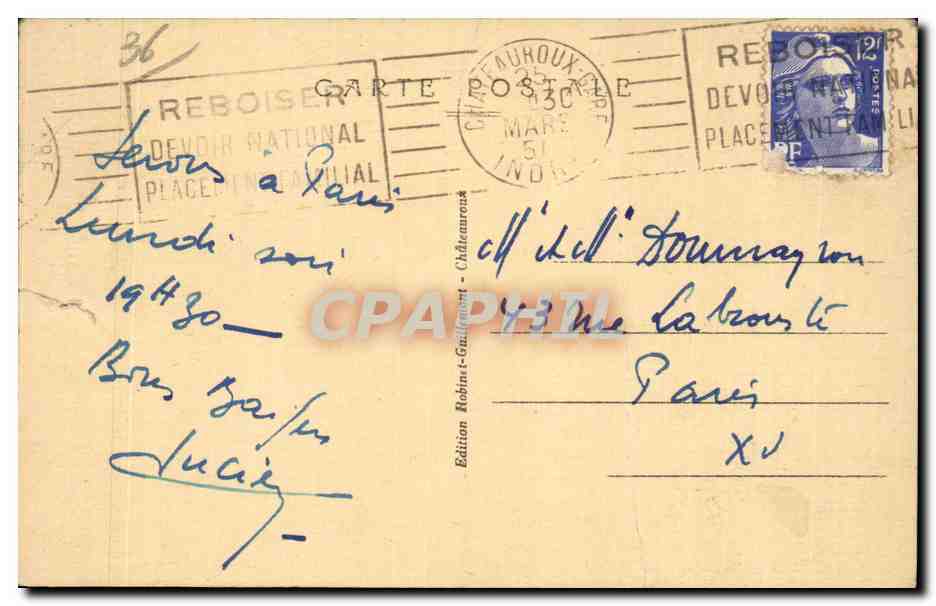 36
CARTE POSTALE
REBOISER
DEVOIR NATIONAL
PLACEMENT FAMILIAL
CHATEAUROUX-GARE
25
MARS
51
INDRE
REBOISER
DEVOIR NATIONA
PLACEMENT FAMILI
12F
POSTES
RF
Serons à Paris
Lundi soir
19H30
Bons Baisers
Lucien
Edition Robinet-Guillemont - Châteauroux
Mr et Me Doumayrou
43 rue Labrouste
Paris
XV
CPAPHIL